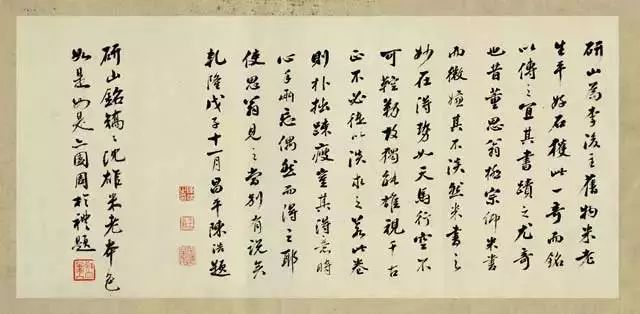 研山為李後主舊物米老
生平好石獲此一奇而銘
以傳之宜其書蹟之尤奇
也昔董思翁極宗仰米書
而微嫌其不淡然米書之
妙在得勢如天馬行空不
可鞚勒故獨能雄視千古
正不必徒以淡求之若此卷
則朴拙疎瘦豈其得意時
心手兩忘偶然而得之耶
使思翁見之當別有說矣
乾隆戊子十一月昌平陳浩題
研山銘矯々沈雄米老本色
如是如是亦園周於禮題